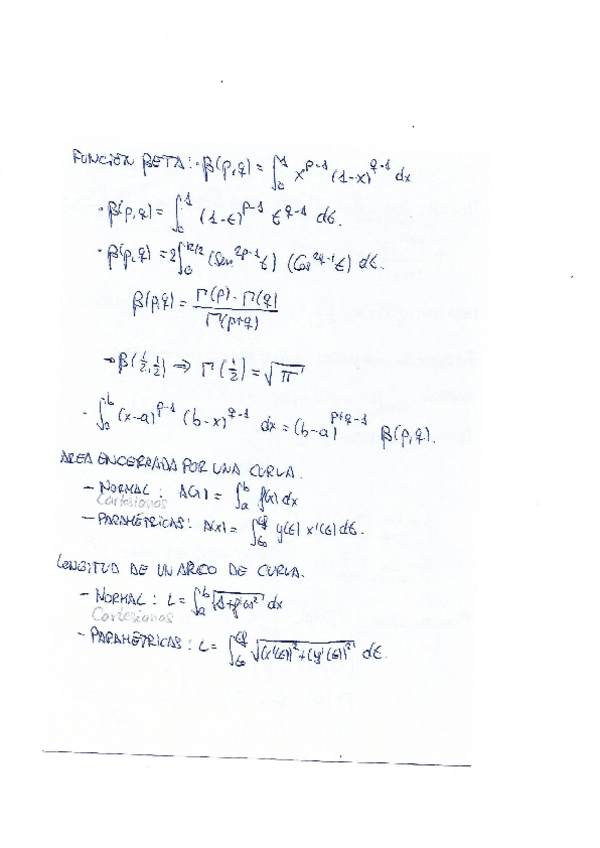 FUNCIÓN BETA: · β(p,q) = ∫₀¹ x^(p-1) (1-x)^(q-1) dx
· β(p,q) = ∫₀¹ (1-t)^(p-1) t^(q-1) dt.
· β(p,q) = 2∫₀^(π/2) (Sen^(2p-1) t) (Cos^(2q-1) t) dt.
β(p,q) = Γ(p) · Γ(q) / Γ(p+q)
→ β(1/2, 1/2) ⇒ Γ(1/2) = √π
· ∫ₐᵇ (x-a)^(p-1) (b-x)^(q-1) dx = (b-a)^(p+q-1) β(p,q).
AREA ENCERRADA POR UNA CURVA.
- NORMAL : A(x) = ∫ₐᵇ f(x) dx
Cartesianas
- PARAMÉTRICAS : A(x) = ∫_(t₀)^(tf) y(t) x'(t) dt.
LONGITUD DE UN ARCO DE CURVA.
- NORMAL : L = ∫ₐᵇ √(1+f'(x)²) dx
Cartesianas
- PARAMÉTRICAS : L = ∫_(t₀)^(tf) √((x'(t))² + (y'(t))²) dt.